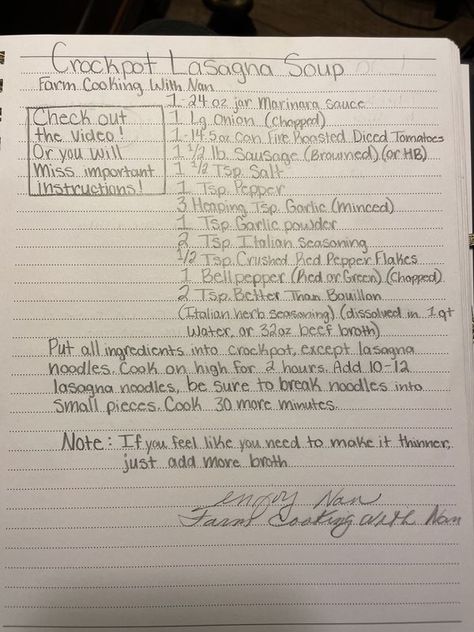 Crockpot Lasagna Soup
Farm Cooking With Nan
Check out
the video!
Or you will
miss important
instructions!
1 - 24 oz jar Marinara sauce
1 Lg Onion (Chopped)
1 - 14.5oz can Fire Roasted Diced Tomatoes
1 1/2 lb. Sausage (Browned) (or HB)
1 1/2 Tsp. Salt
1 Tsp. Pepper
3 Heaping Tsp. Garlic (Minced)
1 Tsp. Garlic powder
2 Tsp. Italian seasoning
1/2 Tsp. Crushed Red Pepper Flakes
1 Bell pepper (Red or Green) (Chopped)
2 Tsp. Better Than Bouillon
(Italian herb seasoning) (dissolved in 1 qt
Water, or 32oz beef broth)
Put all ingredients into crockpot, except lasagna
noodles. Cook on high for 2 hours. Add 10-12
lasagna noodles, be sure to break noodles into
small pieces. Cook 30 more minutes.
Note: If you feel like you need to make it thinner,
just add more broth
enjoy Nan
Farm Cooking With Nan